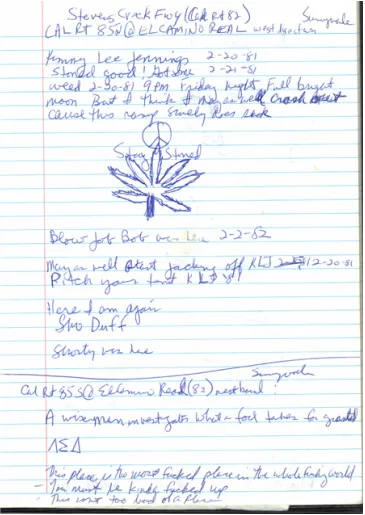 Stevens Creek Fwy (Cal Rt 82)
Sunnyvale
CAL RT 85S @ EL CAMINO REAL west
Kenny Lee Jennings 2-20-81
Stoned good! 2-21-81
weed 2-20-81 9 PM Friday night Full bright
moon But I think I may as well crash
Cause this ramp surely does suck
Stay Stoned
Blow Job Bob was here 2-2-82
May as well start jacking off KLJ 2-20-81
Pitch your tent KLJ 81
Here I am again
Duff
Shorty was here
Sunnyvale
Cal Rt 85S @ El Camino Real (82) westbound
A wise man investigates what a fool takes for granted
ΛΣΔ
This place is the most fucked place in the whole fucking world
- You must be kinda fucked up
- This isn't too bad of a place